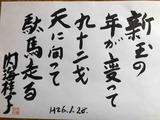 新玉の
年が変って
九十二歳
天に向って
駄馬走る
内海桂子
H26.1.28.